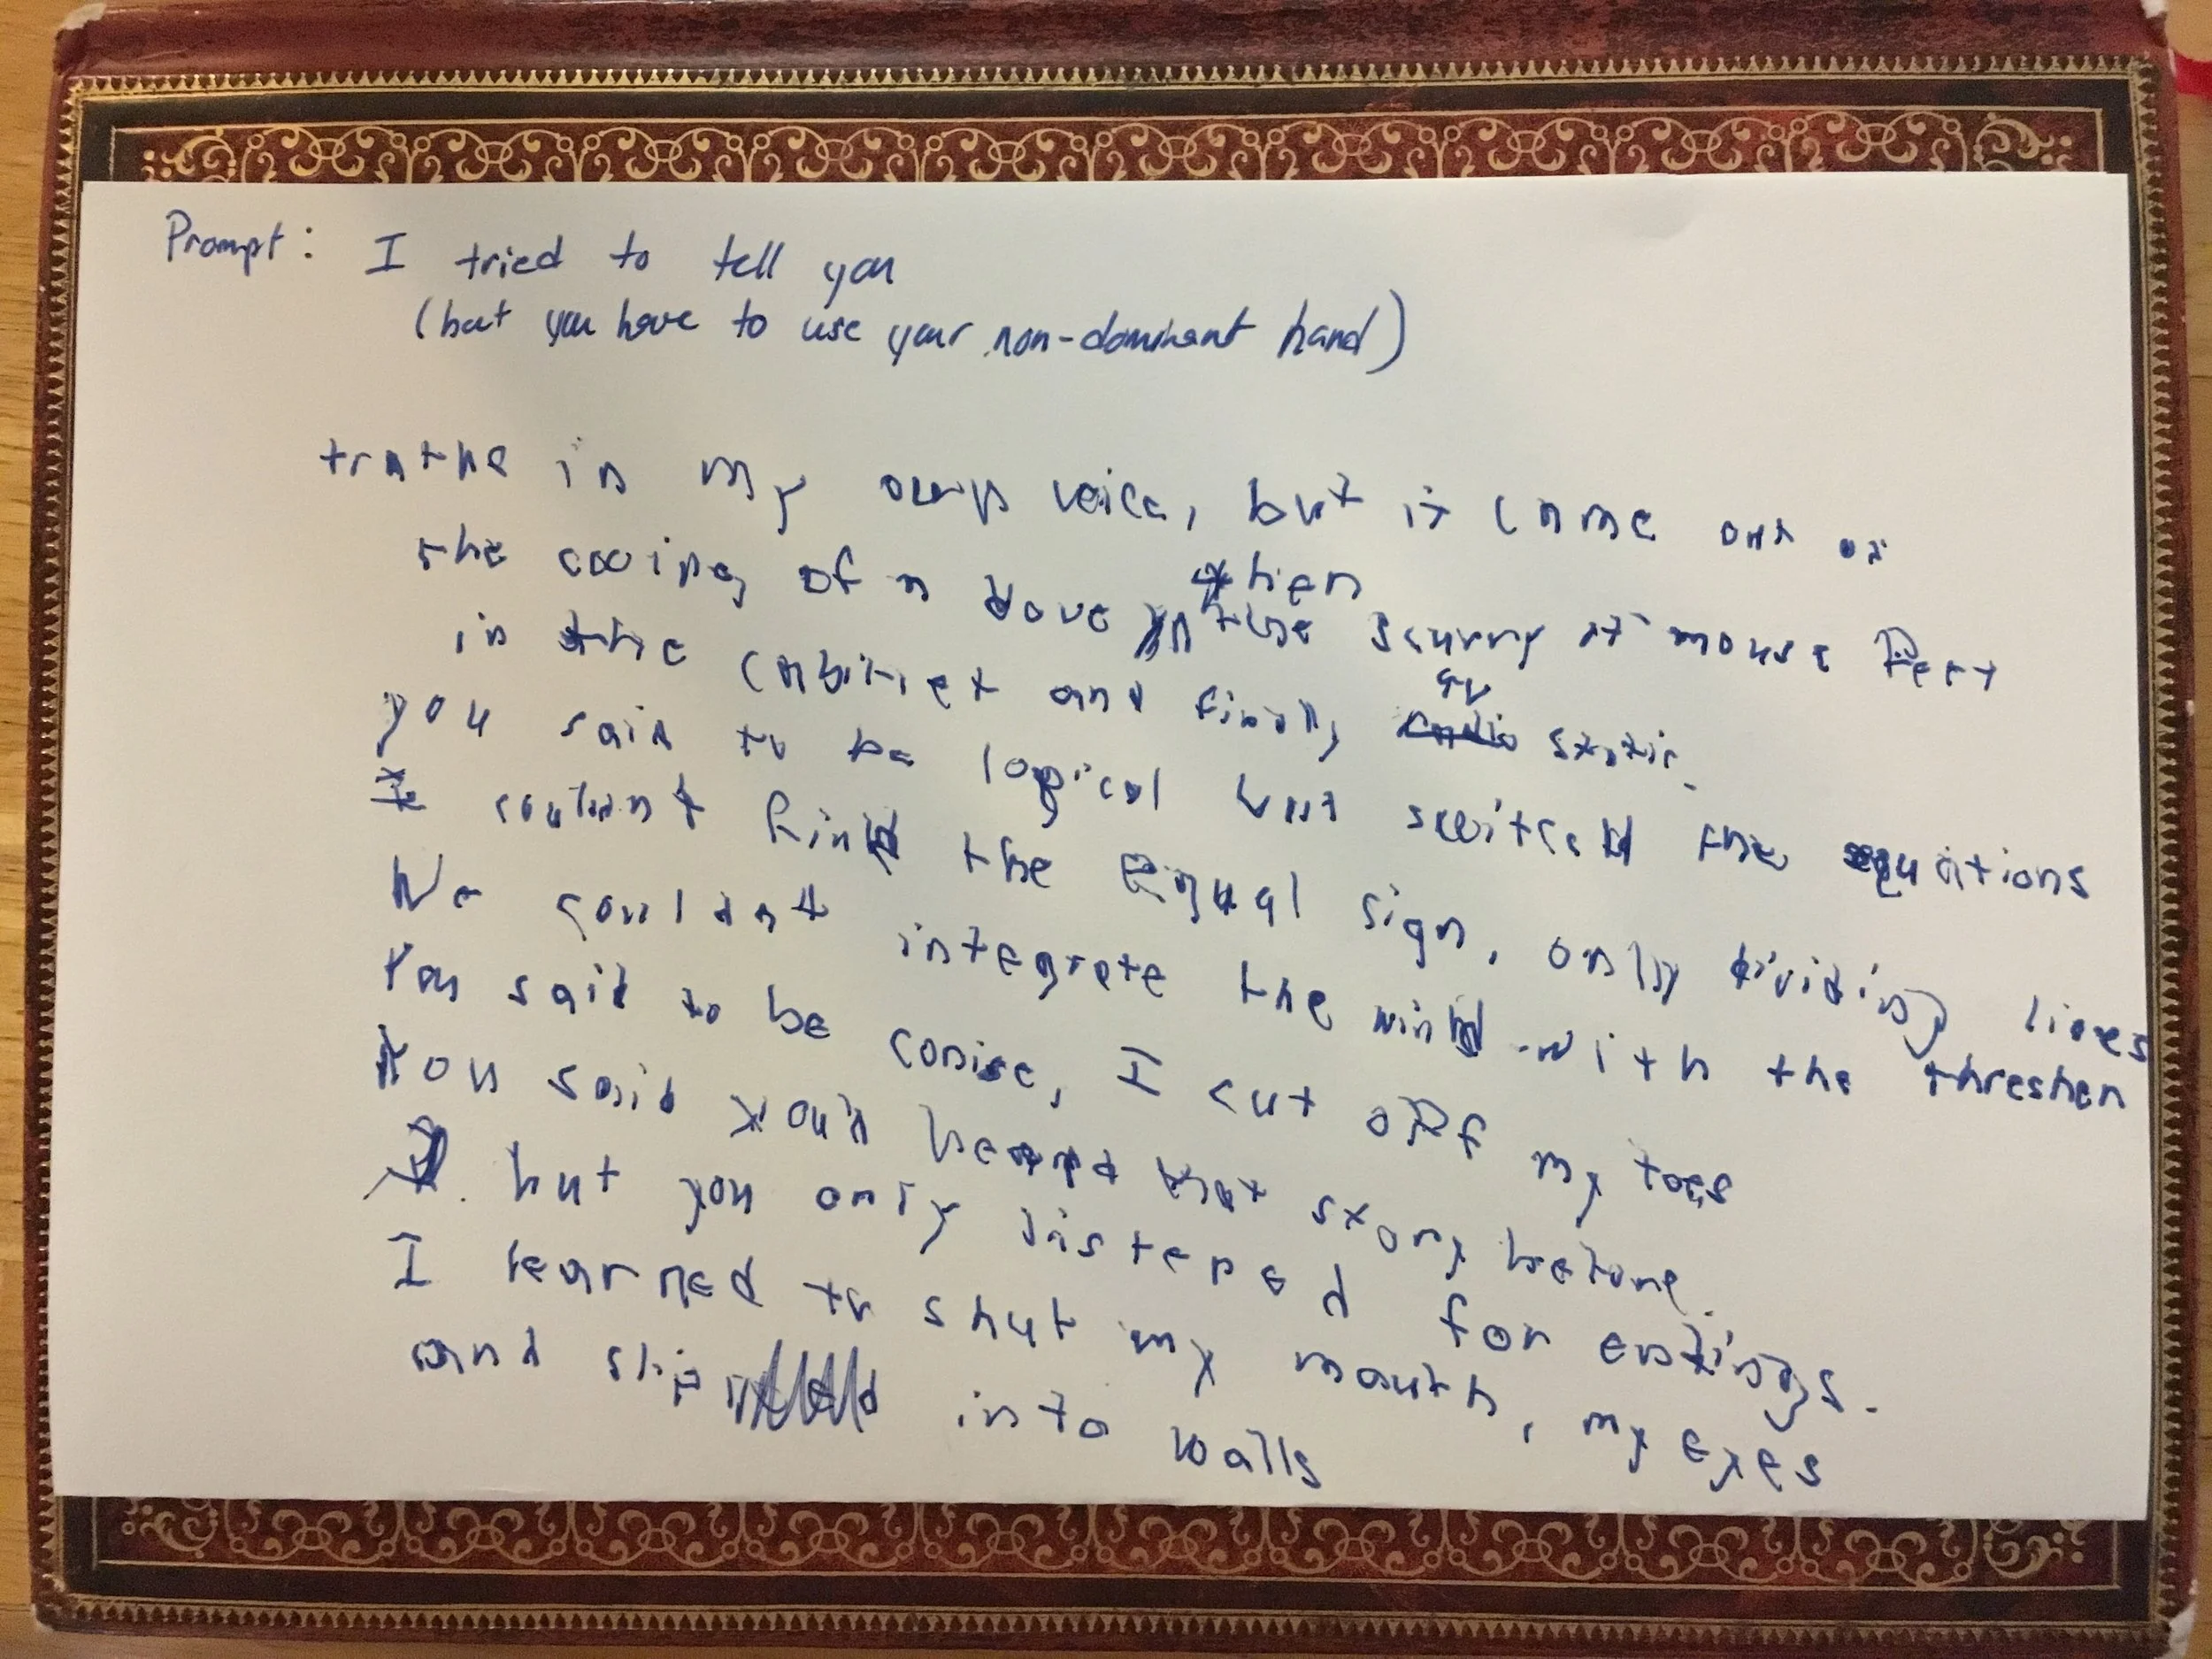 Prompt: I tried to tell you
(but you have to use your non-dominant hand)
truths in my own voice, but it came out as
the cooing of a dove then the scurry of mouse feet
in the cabinet and finally static.
you said to be logical but switched the equations
I couldnt find the equal sign, only dividing lines
We couldnt integrate the wind with the thresher
You said to be conise, I cut off my toes
You said youd heard that story before.
but you only listened for endings.
I learned to shut my mouth, my eyes
and slip into walls